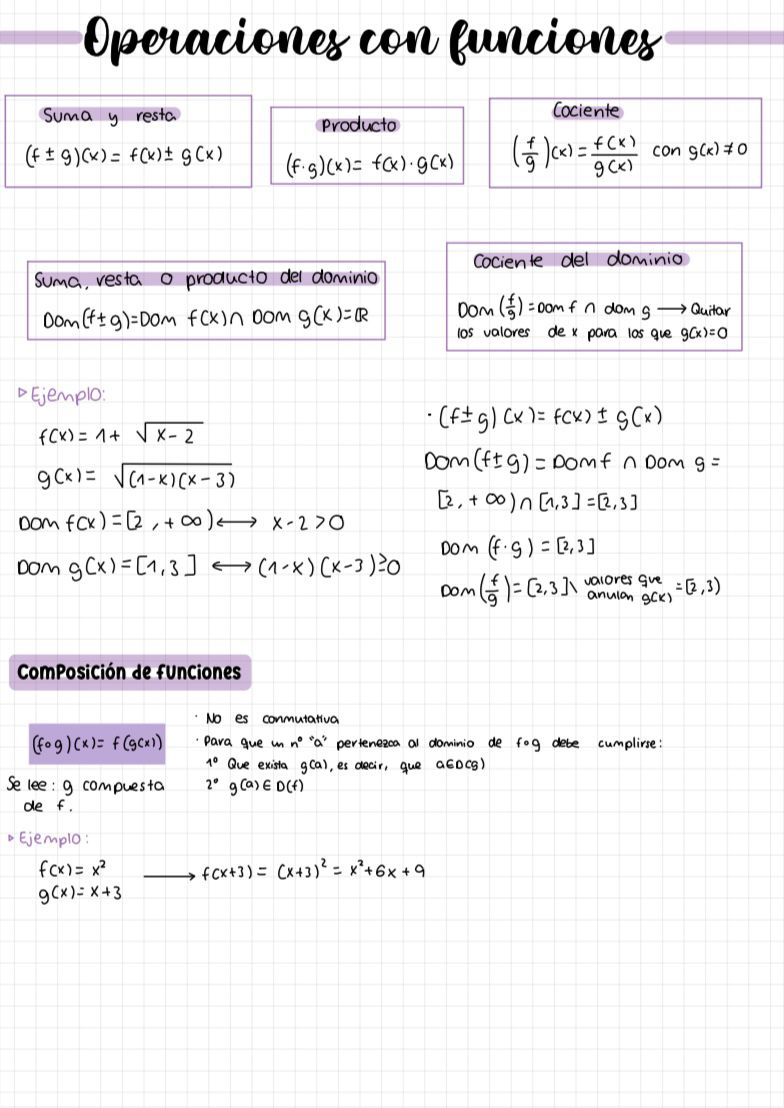 Operaciones con funciones
Suma y resta
(f ± g)(x) = f(x) ± g(x)
Producto
(f·g)(x) = f(x)·g(x)
Cociente
(f/g)(x) = f(x)/g(x) con g(x) ≠ 0
Suma, resta o producto del dominio
Dom(f±g)=Dom f(x)∩ Dom g(x)=ℝ
Cociente del dominio
Dom (f/g) = Dom f ∩ dom g → Quitar
los valores de x para los que g(x)=0
▹Ejemplo:
f(x) = 1+ √(x-2)
g(x) = √((1-x)(x-3))
Dom f(x) = [2, +∞) ⟷ x-2>0
Dom g(x) = [1,3] ⟷ (1-x)(x-3)≥0
· (f±g)(x) = f(x) ± g(x)
Dom(f±g) = Dom f ∩ Dom g =
[2, +∞) ∩ [1,3] = [2,3]
Dom (f·g) = [2,3]
Dom (f/g) = [2,3] \ valores que anulan g(x) = [2,3)
Composición de funciones
(f∘g)(x) = f(g(x))
Se lee: g compuesta
de f.
· No es conmutativa
· Para que un nº "a" pertenezca al dominio de f∘g debe cumplirse:
1º Que exista g(a), es decir, que a∈D(g)
2º g(a) ∈ D(f)
▹Ejemplo:
f(x) = x² → f(x+3) = (x+3)² = x²+6x+9
g(x) = x+3